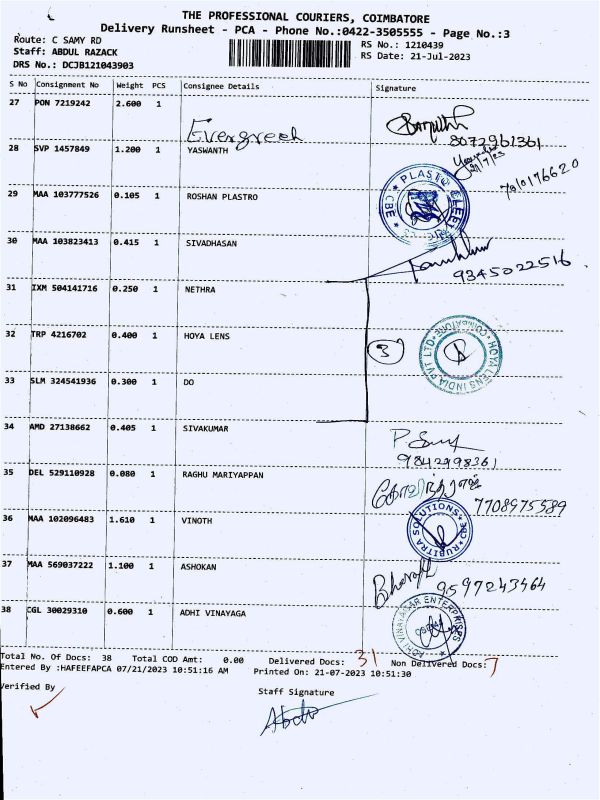 THE PROFESSIONAL COURIERS, COIMBATORE
Delivery Runsheet - PCA - Phone No.:0422-3505555 - Page No.:3
Route: C SAMY RD
RS No.: 1210439
Staff: ABDUL RAZACK
RS Date: 21-Jul-2023
DRS No.: DCJB121043903
S No Consignment No Weight PCS Consignee Details Signature
27 PON 7219242 2.600 1
Evergreen
8072961361
28 SVP 1457849 1.200 1 YASWANTH
29 MAA 103777526 0.105 1 ROSHAN PLASTRO
PLASTO CBE
30 MAA 103823413 0.415 1 SIVADHASAN
9345022516
31 IXM 504141716 0.250 1 NETHRA
32 TRP 4216702 0.400 1 HOYA LENS
3
HOYA LENS INDIA PVT LTD COIMBATORE
33 SLM 324541936 0.300 1 DO
34 AMD 27138662 0.405 1 SIVAKUMAR
9842998361
35 DEL 529110928 0.080 1 RAGHU MARIYAPPAN
7708975589
36 MAA 102096483 1.610 1 VINOTH
RUBITRA SOLUTIONS CBE
37 MAA 569037222 1.100 1 ASHOKAN
9597243464
38 CGL 30029310 0.600 1 ADHI VINAYAGA
ADHI VINAYAGAR ENTERPRISES
Total No. Of Docs: 38 Total COD Amt: 0.00 Delivered Docs: 31 Non Delivered Docs: 7
Entered By :HAFEEFAPCA 07/21/2023 10:51:16 AM Printed On: 21-07-2023 10:51:30
Verified By
Staff Signature